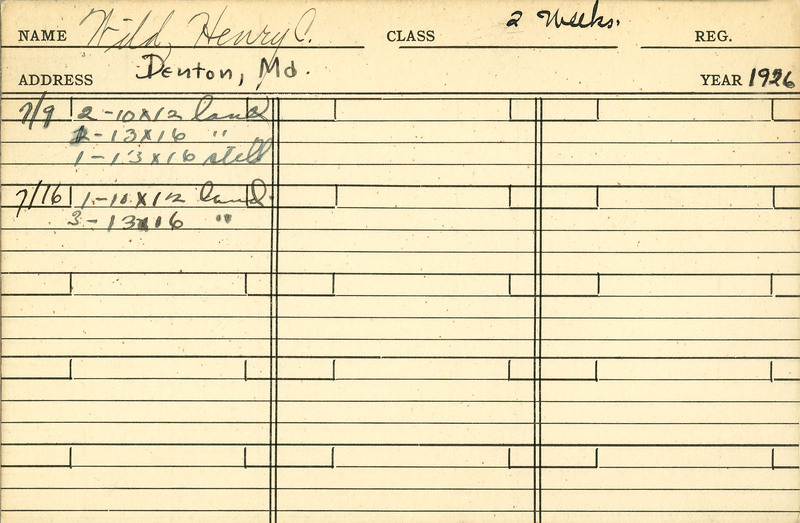 NAME Wild, Henry C. CLASS 2 Weeks. REG.
ADDRESS Denton, Md. YEAR 1926
7/9 2-10x12 land
2-13x16 "
1-13x16 still
7/16 1-10x12 land.
3-13x16 "